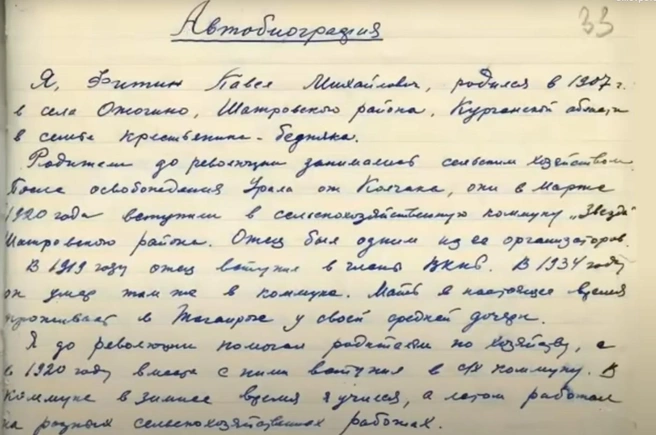 33
Автобиография
Я, Фитин Павел Михайлович, родился в 1907 г.
в селе Ожогино, Шатровского района, Курганской области
в семье крестьянина-бедняка.
Родители до революции занимались сельским хозяйством.
После освобождения Урала от Колчака, они в марте
1920 года вступили в сельскохозяйственную коммуну „Звезда"
Шатровского района. Отец был одним из ее организаторов.
В 1919 году отец вступил в члены ВКПб. В 1934 году
он умер там же в коммуне. Мать в настоящее время
проживает в у своей средней дочери.
Я до революции помогал родителям по хозяйству, а
в 1920 году вместе с ними вступил в с/х коммуну. В
коммуне в зимнее время я учился, а летом работал
на разных сельскохозяйственных работах.